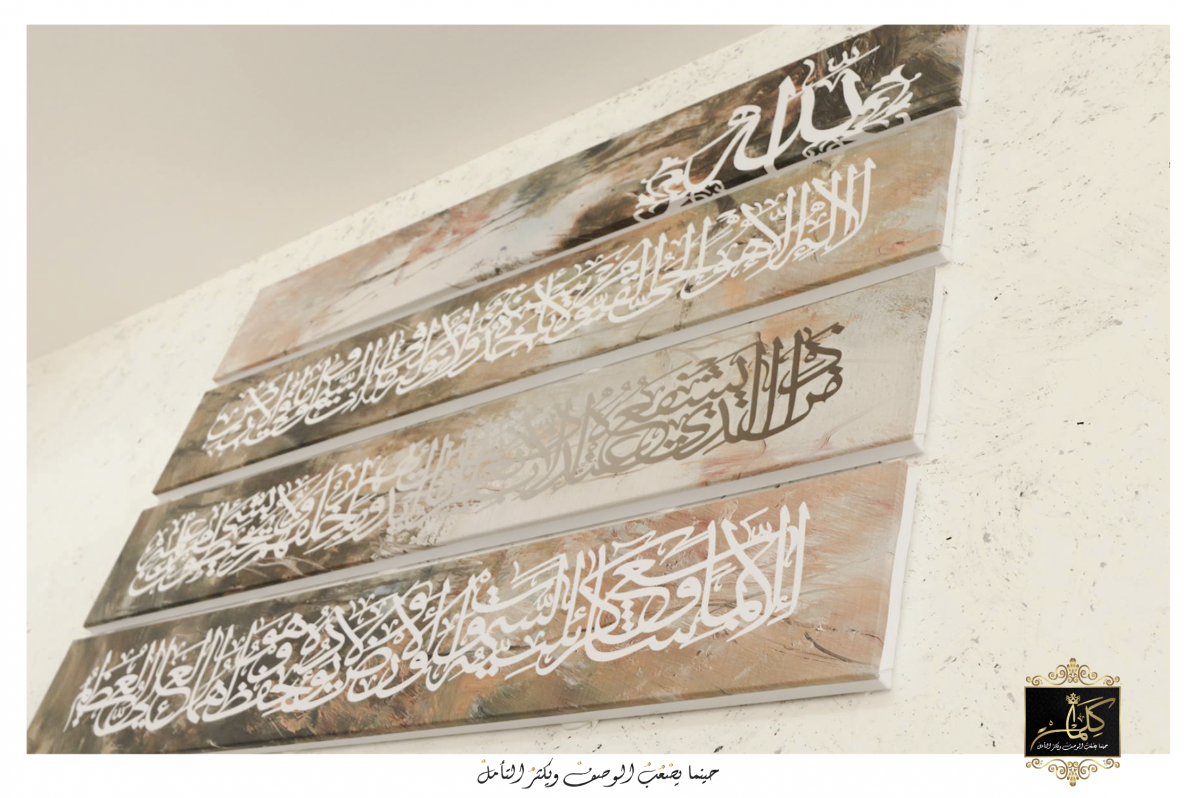 الله
لا إله إلا هو الحي القيوم لا تأخذه سنة ولا نوم له ما في السموات وما في الأرض
من ذا الذي يشفع عنده إلا بإذنه يعلم ما بين أيديهم وما خلفهم ولا يحيطون بشيء من علمه
إلا بما شاء وسع كرسيه السموات والأرض ولا يؤده حفظهما وهو العلي العظيم
كلمات
حينما يصعب الوصف ويكثر التأمل
حينما يصعب الوصف ويكثر التأمل